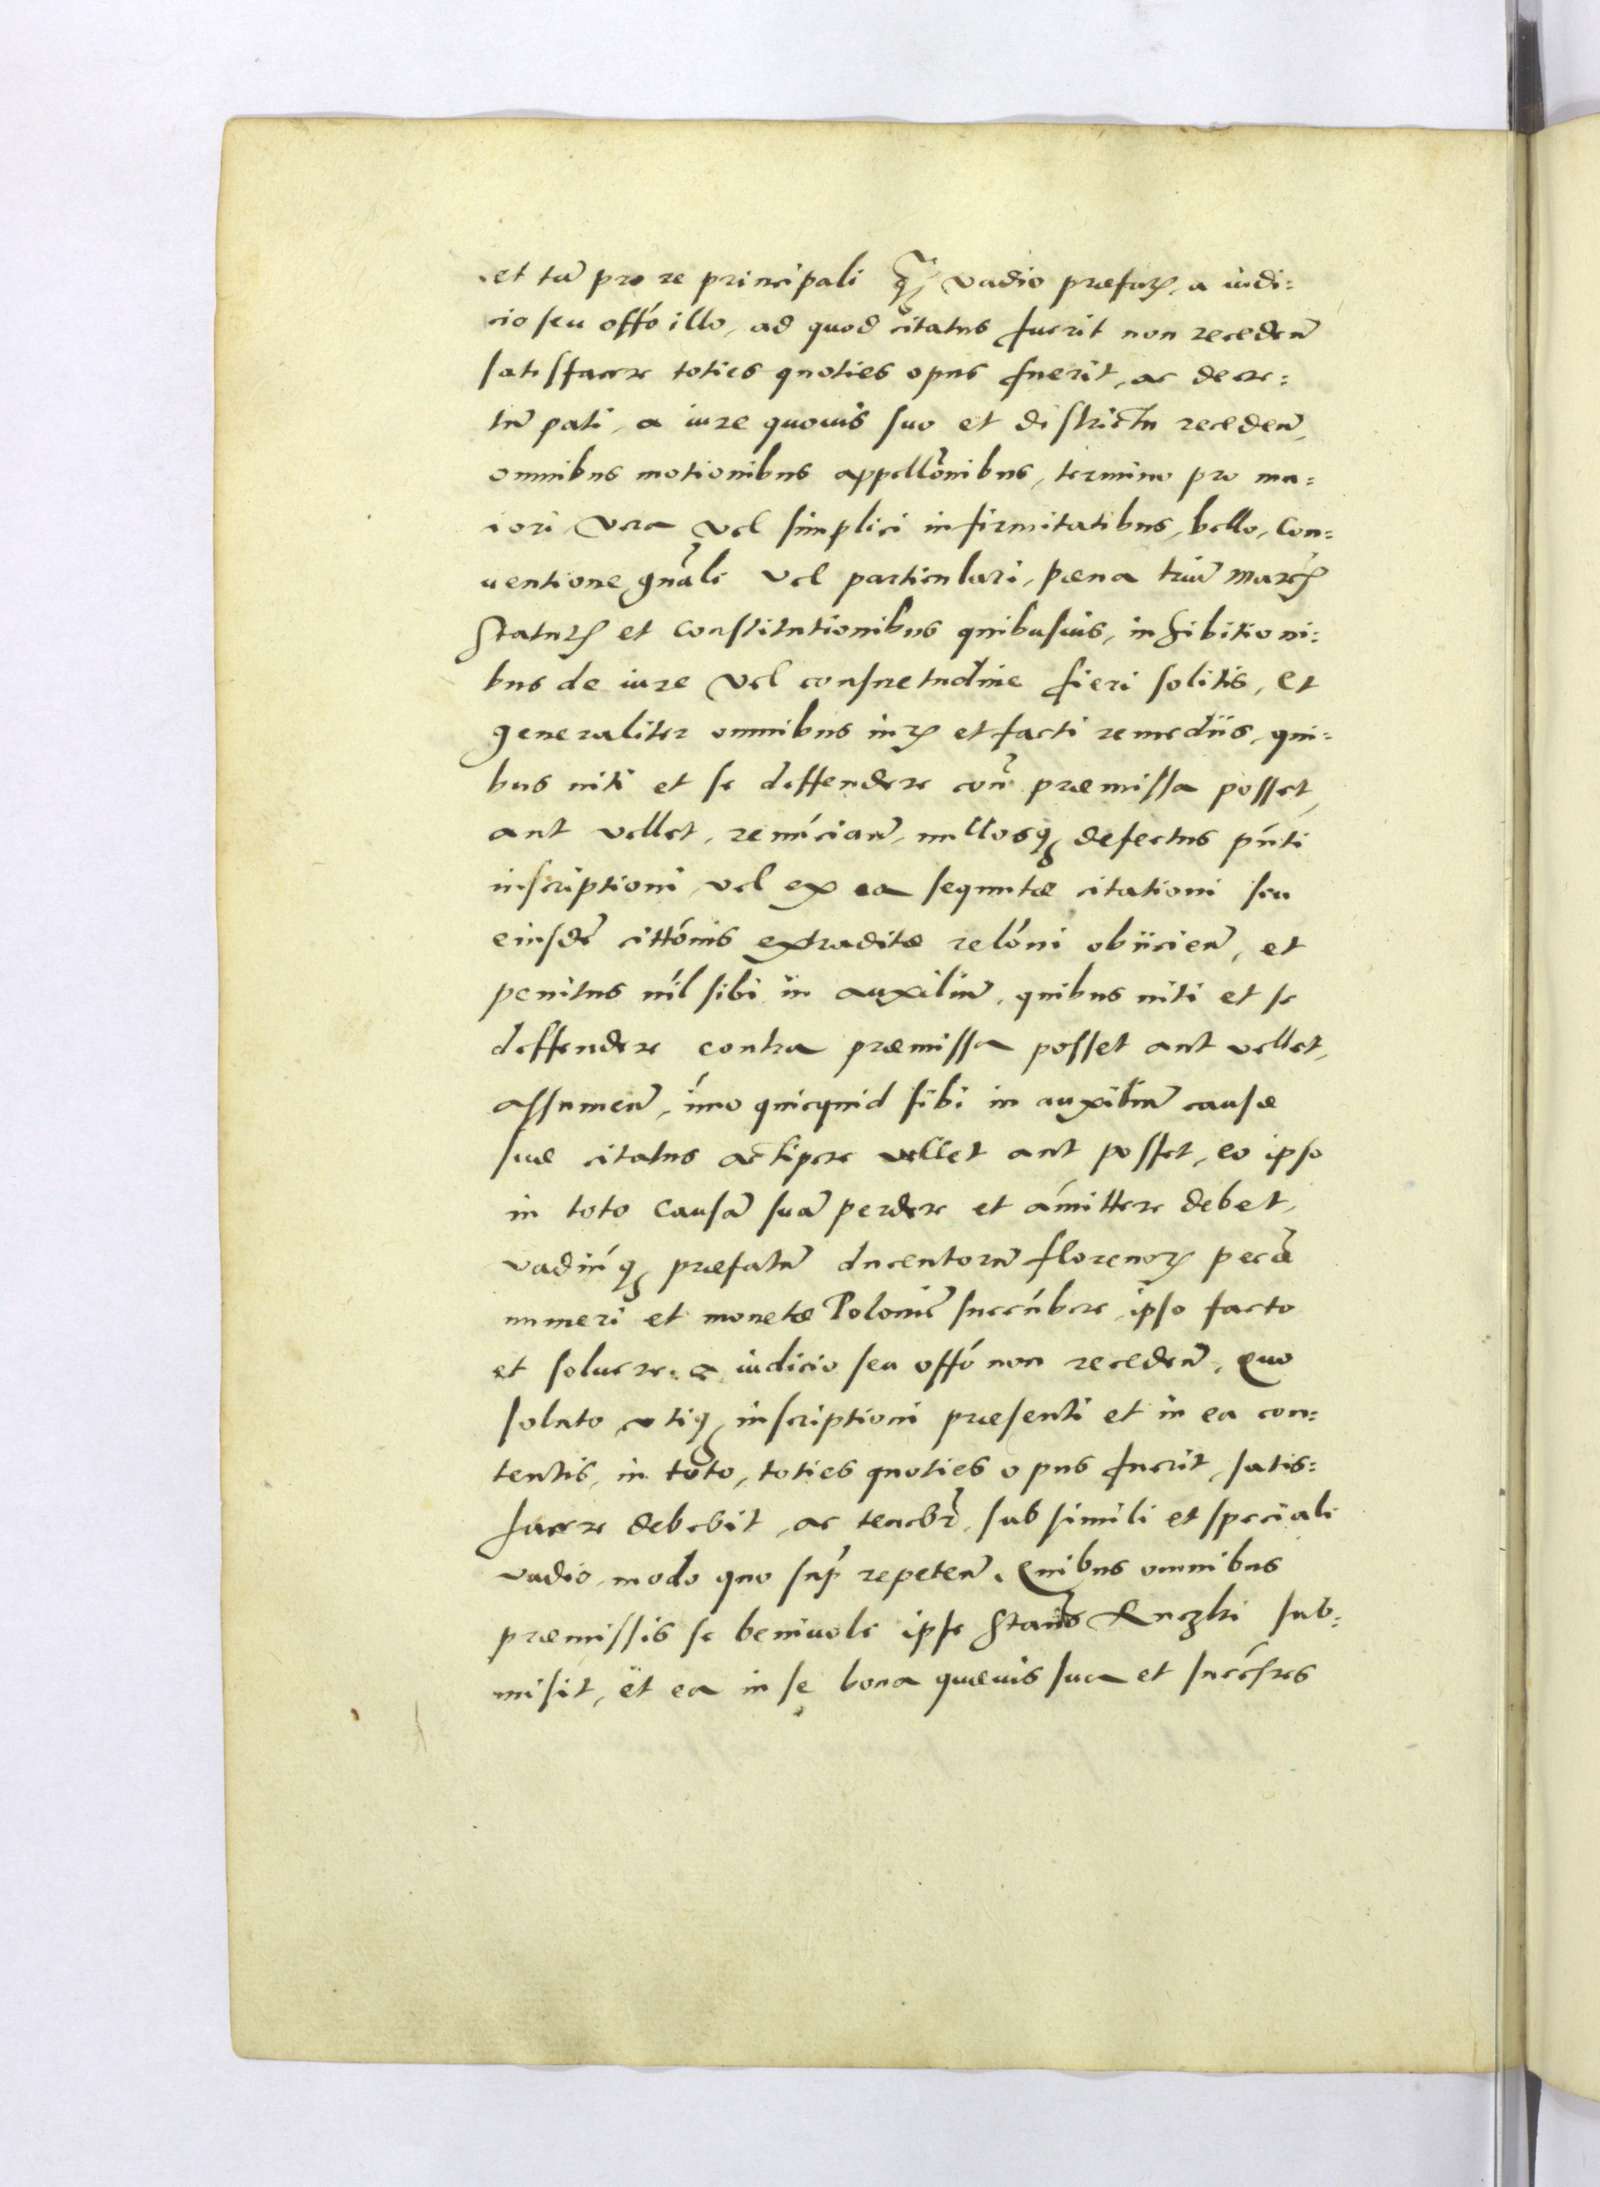 et tũ pro re principali q̃ꝫ vadio præfatꝝ, a iudi=
cio seu offó illo, ad quod citatus fuerit non recedeñ
satisfacere toties quoties opus fuerit, ac decre=
tũ pati, a iure quouis suo et districtu recedeñ,
omnibus motionibus appellõnibus, termino pro ma=
iori, vera vel simplici infirmitatibus, bello, Con=
uentione gñali vel particulari, pœna triũ marcꝝ
Statutꝝ et constitutionibus quibusuis, inhibitioni=
bus de iure vel consuetudine fieri solitis, et
generaliter omnibus iurꝝ et facti remediis, qui=
bus niti et se deffendere coñ præmissa posset,
aut vellet, renúciañ, nullosqꝫ defectus pńti
inscriptioni, vel ex ea sequutæ citationi seu
eiusdẽ cittónis extraditæ relóni obiicieñ, et
penitus níl sibi in auxiliũ, quibus niti et se
deffendere contra præmissa posset aut vellet,
assumeñ, ímo quicquid sibi in auxiliũ causæ
suæ citatus accipere vellet aut posset, eo ipso
in toto causã suã perdere et ámittere debet,
vadiúqꝫ præfatũ ducentorũ florenoꝝ pecũ
numeri et monetæ Polonicẽ succúbere, ipso facto
et soluere, a iudicio seu offó non recedeñ, Quo
soluto vtiqꝫ inscriptioni præsenti et in ea con=
tentis, in toto, toties quoties opus fuerit, satis=
facere debebit, ac tenebr̃, sub simili et speciali
vadio, modo quo suṕ repeteñ. Quibus omnibus
præmissis se beniuole ipse Stanis̃ Ruczki sub=
misit, et ea in se bona quæuis sua et succéres